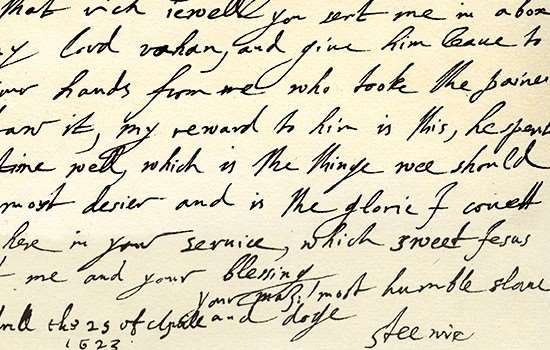 that rich iewell you sent me in a box
my lord vahan, and give him leave to
your hands from me who tooke the paines
draw it, my reward to him is this, he spent
time well, which is the thinge wee should
most desier and is the glorie I covett
here in your service, which sweet Jesus
me and your blessing
your most humble slave
the 29 of and doge
Steenie
1623